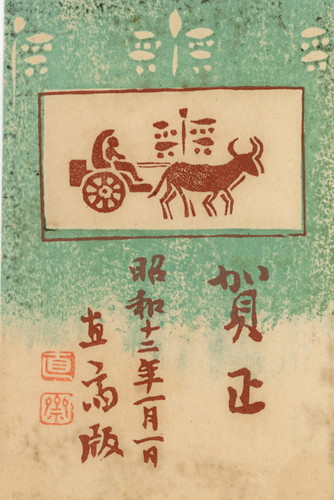 賀正
昭和十二年一月一日
直 版
直